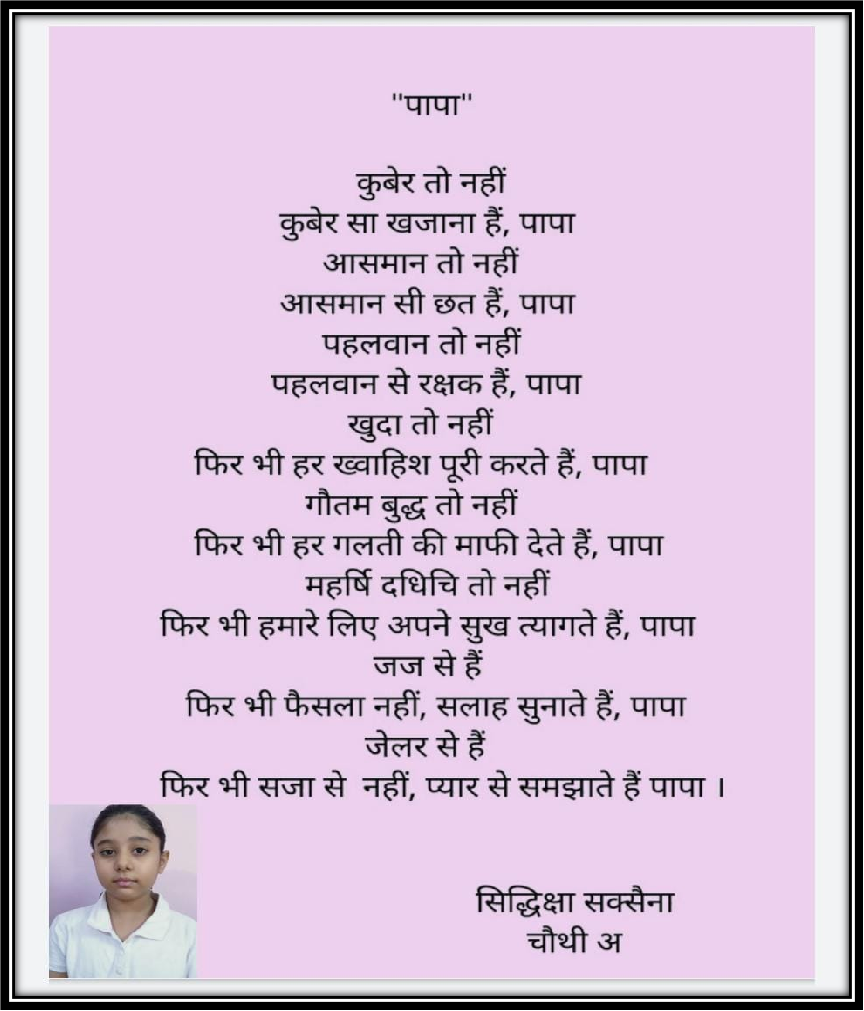 "पापा"
कुबेर तो नहीं
कुबेर सा खजाना हैं, पापा
आसमान तो नहीं
आसमान सी छत हैं, पापा
पहलवान तो नहीं
पहलवान से रक्षक हैं, पापा
खुदा तो नहीं
फिर भी हर ख्वाहिश पूरी करते हैं, पापा
गौतम बुद्ध तो नहीं
फिर भी हर गलती की माफी देते हैं, पापा
महर्षि दधिचि तो नहीं
फिर भी हमारे लिए अपने सुख त्यागते हैं, पापा
जज से हैं
फिर भी फैसला नहीं, सलाह सुनाते हैं, पापा
जेलर से हैं
फिर भी सजा से नहीं, प्यार से समझाते हैं पापा ।
सिद्धिक्षा सक्सैना
चौथी अ